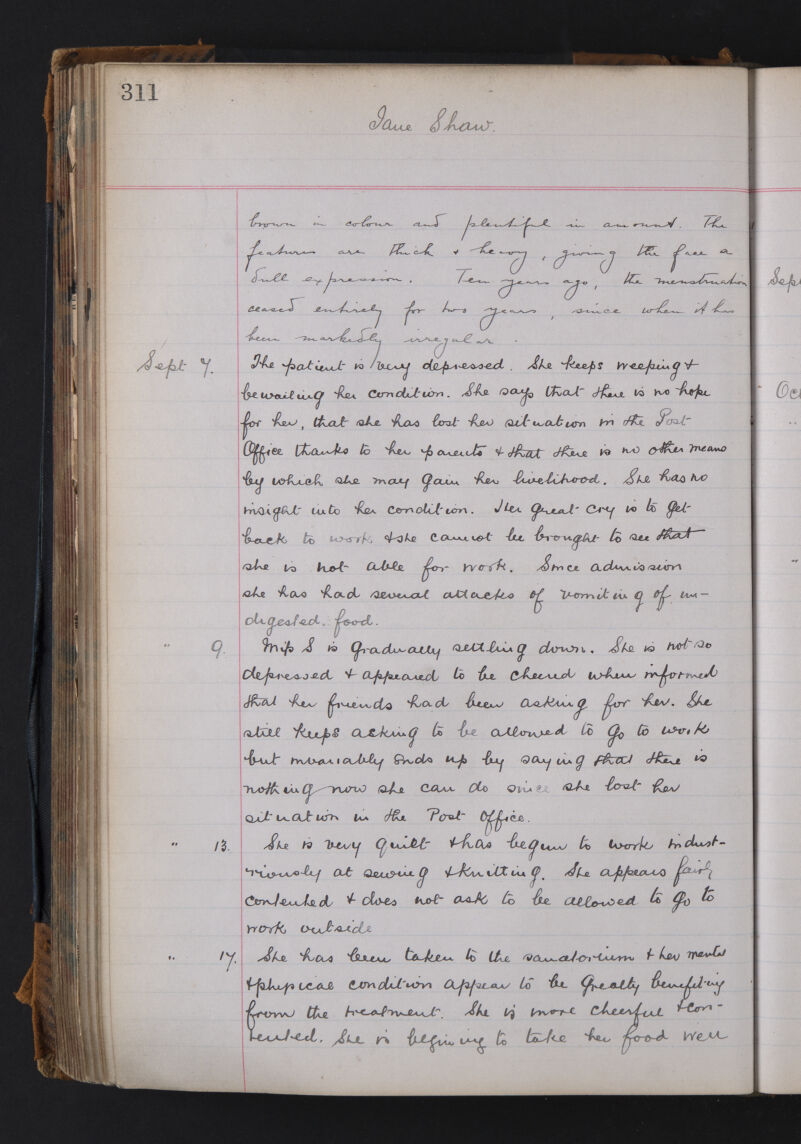 311
Jane Shaw.
brown in colour and plentiful in amount. The
features are thick & heavy, giving the face a
dull expression. Ten years ago, the menstruation
ceased entirely for two years, since when it has
been markedly irregular.
Sept 7. The patient is very depressed. She keeps weeping &
bewailing her condition. She says that there is no hope
for her, that she has lost her situation in the Post
Office thanks to her parents & that there is no other means
by which she may gain her livelihood. She has no
insight into her condition. Her great cry is to get
back to work & she cannot be brought to see that
she is not able for work. Since admission
she has had several attacks of vomiting of un-
digested food.
" 9. Miss S is gradually settling down. She is not so
depressed & appeared to be cheered when informed
that her friends had been asking for her. She
still keeps asking to be allowed to go to work
but invariably ends up by saying that there is
nothing now she can do since she lost her
situation in the Post Office.
" 13. She is very quiet & has begun to work indust-
riously at sewing & knitting. She appears fairly
contented & does not ask to be allowed to go to
work outside
" 17. She has been taken to the sanatorium & her mental
& physical condition appear to be greatly benefiting
from the treatment. She is more cheerful & con-
tented. She is beginning to take her food well
Sept
Oct
"
"